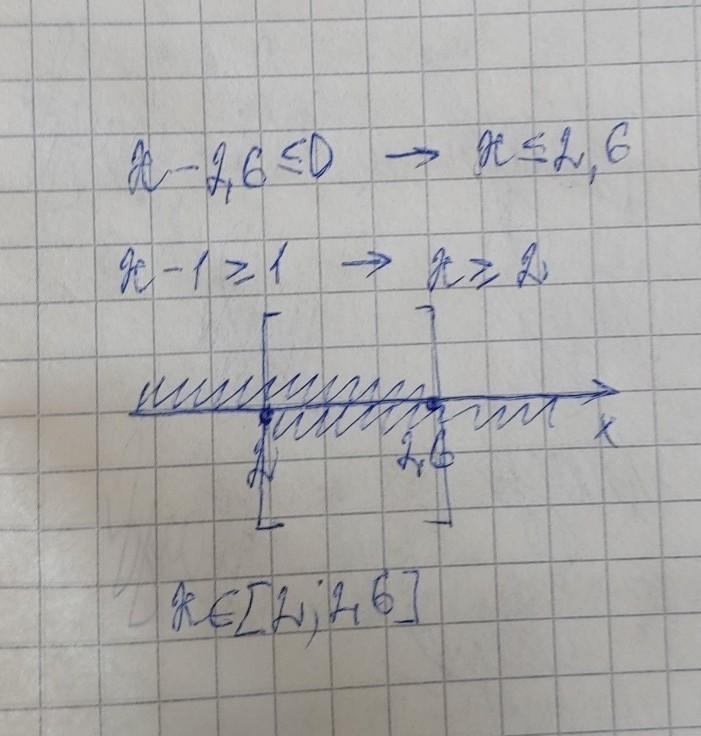 x - 2,6 ≤ 0 → x ≤ 2,6
x - 1 ≥ 1 → x ≥ 2
2 2,6 x
x ∈ [2; 2,6]